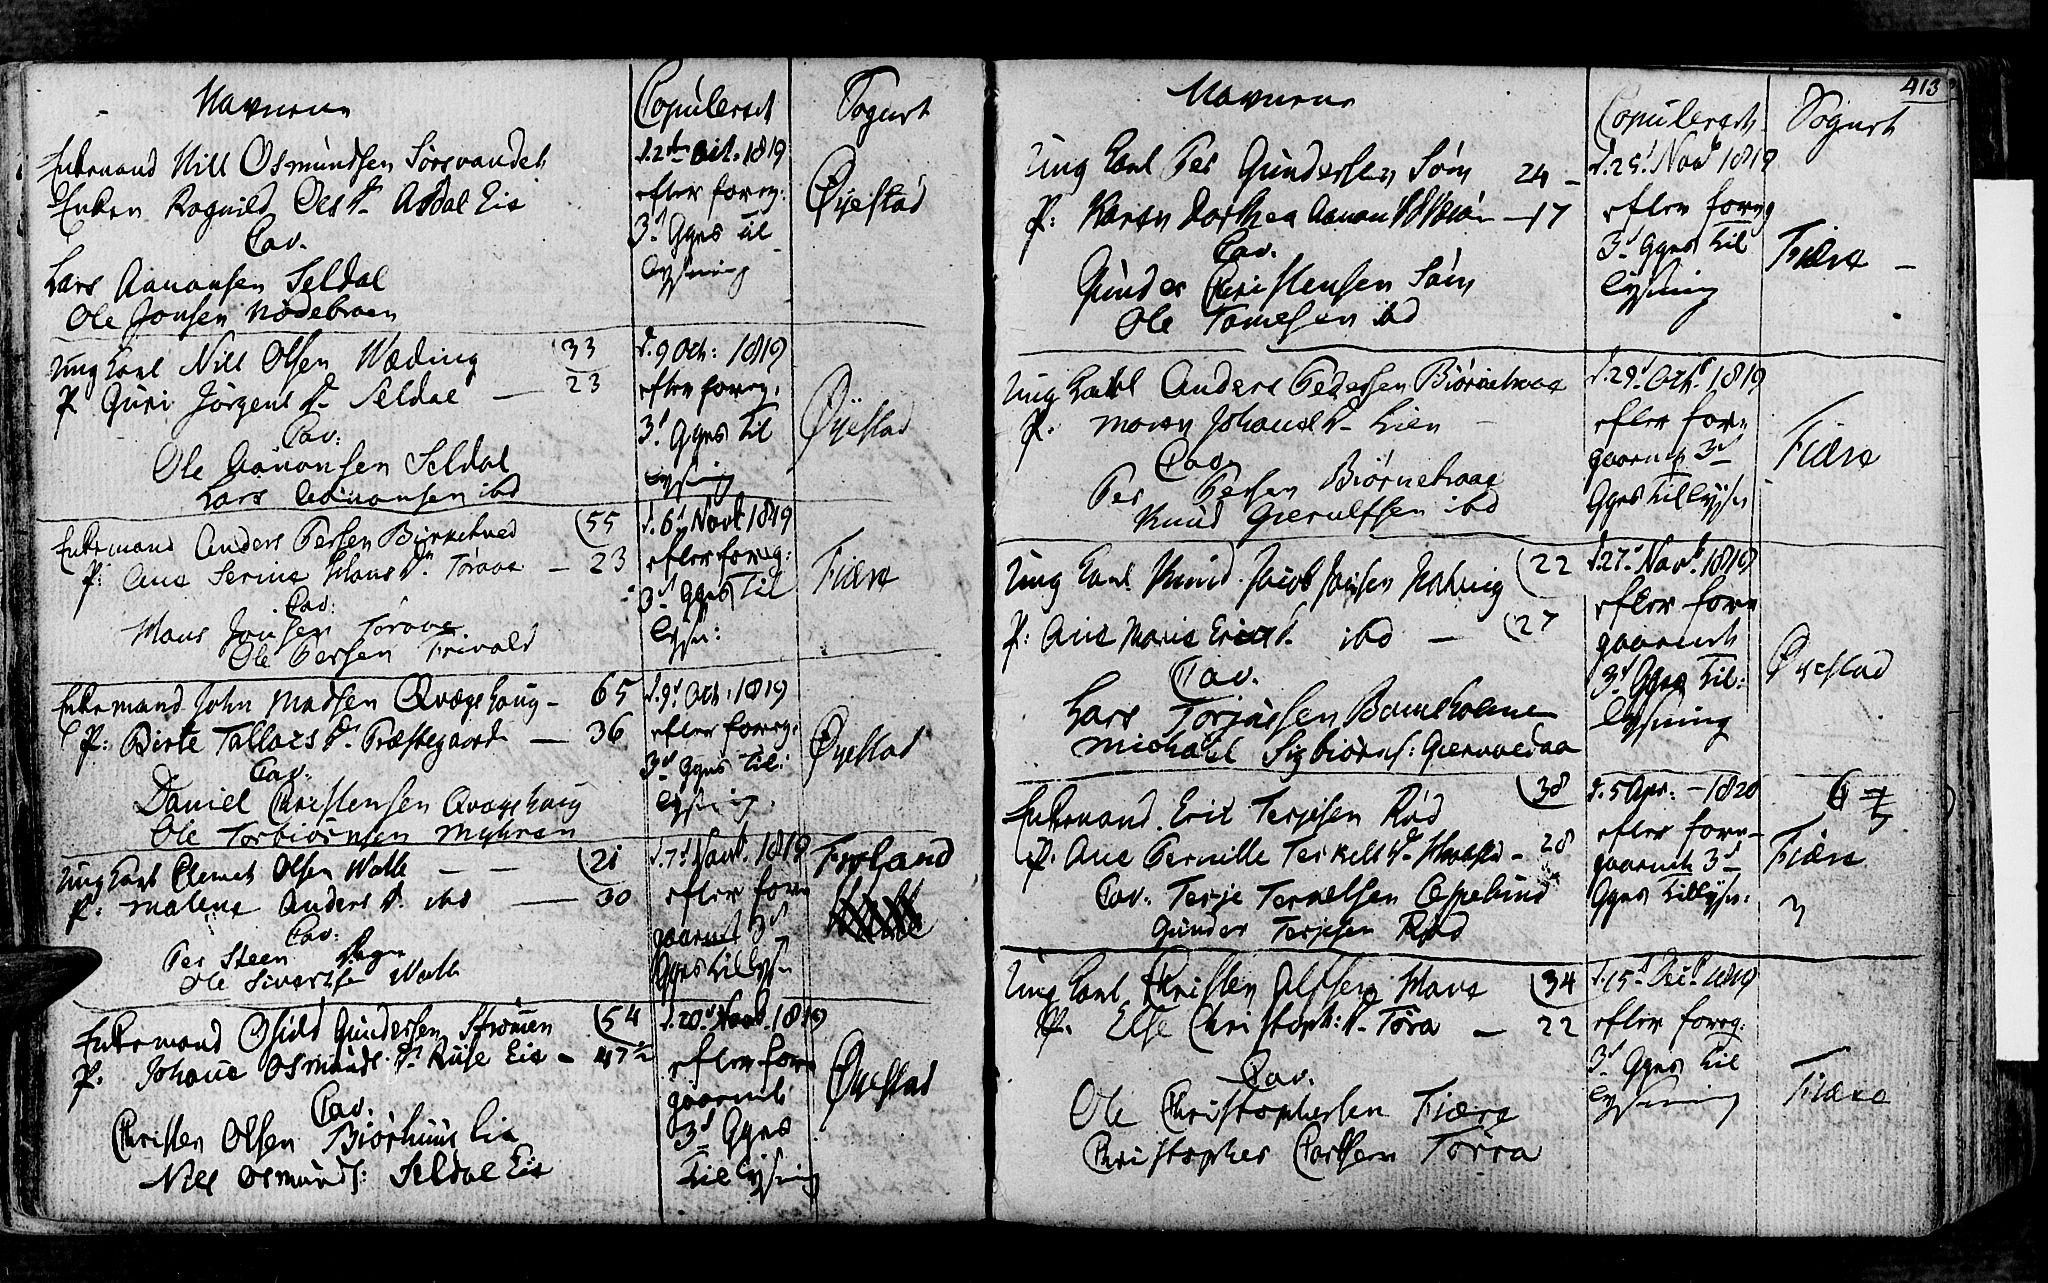 Navnene
Copuleret
Sognet
Enkemand Nill Osmundsen Sørsvandet
Enken Ragnild Oles D. Asdal Eie
Cav.
Lars Aanonsen Seldal
Ole Jonsen Nødebroen
d. 2den Oct. 1819
efter foreg:
3d Ggrs til
lysning
Øyestad
Ung Karl Nill Olsen Wæding 33
P. Guri Jørgens D. Seldal — 23
Cav:
Ole Aanonsen Seldal
Lars Aanonsen ibd
d. 9 Oct: 1819
efter foreg.
3d Ggrs til
lysning
Øyestad
Enkemand Anders Persen Birketved 55
P: Ane Serine Hans D. Tøraae — 23
Cav:
Hans Jonsen Tøraae
Ole Persen Trivold
d. 6d Novb 1819
efter foreg:
3d Ggrs til
lysn:
Fiære
Enkemand John Madsen Qvægehaug — 65
P: Birte Tallacs D. Præstegaard — 36
Cav:
Daniel Christensen Qvægehaug
Ole Torbiørnsen Myhren
d. 9d Oct. 1819
efter foreg.
3d Ggrs til:
lysning.
Øyestad
Ung Karl Clemet Olsen Walle — — 21
P: Malene Anders D. ibd — 30
Cav:
Per Steen
Ole Sivertse Walle
d. 7d Novb. 1819
efter fore
gaaend 3d
Ggrs tillysn
Froland
Enkemand Osuld Gundersen Strømen 54
P. Johane Osmunds D. Ruse Eie — 47½
Cav:
Christen Olsen Biørhuus Eie
Nill Osmunds: Seldal Eie
d. 20d Novb. 1819
efter fore
gaaende
3d Ggrs
tillysning
Øyestad
413
Navnene
Copuleret
Sognet
Ung Karl Per Gundersen Søm 24 —
P: Karen Dorthea Aanon D. — 17
Cav.
Gunder Christensen Søm
Ole Tomesen ibd
d. 25d Novb 1819
efter foreg
3d Ggrs til
lysning
Fiære —
Ung Karl Anders Pedersen Biørnetraae
P. Maren Johans D. Lien —
Cav.
Per Persen Biørnetraae
Knud Gierulfsen ibd
d. 29d Octb 1819
efter fore
gaaende 3d
Ggrs tillysn
Fiære
Ung Karl Knud Jacob Jansen Natvig 22
P: Ane Marie Erics D. ibd — 27
Cav.
Lars Torjussen Bomeholmen
Michael Sigbiørns: Giervoldaa
d. 27d Novb. 1819
efter fore
gaaende
3d Ggrs til:
lysning
Øyestad
Enkemand Eric Terjesen Rød 38
P. Ane Pernille Terkels D. — 28
Cav. Terje Terkelsen Oppelund
Gunder Terjesen Rød
d. 5 Apr: — 1820
efter fore-
gaaende 3d
Ggrs tillysn:
Fiære
Ung Karl Christen Alfsen Have 34
P. Else Christoph: D. Tøra — 22
Cav.
Ole Christophersen Fiære
Christopher Carlsen Tørra
d. 15d Decb 1819
efter foreg:
3d Ggrs til
lysning
Fiære